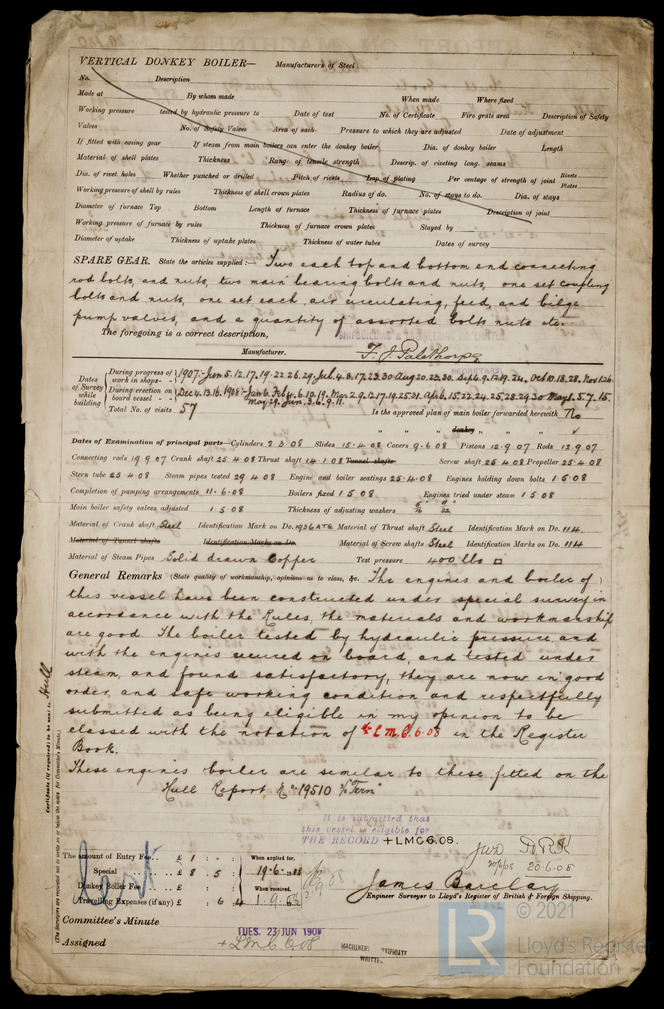 VERTICAL DONKEY BOILER— Manufacturers of Steel
No. Description
Made at By whom made When made Where fixed
Working pressure tested by hydraulic pressure to Date of test No. of Certificate Fire grate area Description of Safety
Valves No. of Safety Valves Area of each Pressure to which they are adjusted Date of adjustment
If fitted with easing gear If steam from main boilers can enter the donkey boiler Dia. of donkey boiler Length
Material of shell plates Thickness Range of tensile strength Descrip. of riveting long. seams
Dia. of rivet holes Whether punched or drilled Pitch of rivets Lap of plating Per centage of strength of joint Rivets Plates
Working pressure of shell by rules Thickness of shell crown plates Radius of do. No. of stays to do. Dia. of stays
Diameter of furnace Top Bottom Length of furnace Thickness of furnace plates Description of joint
Working pressure of furnace by rules Thickness of furnace crown plates Stayed by
Diameter of uptake Thickness of uptake plates Thickness of water tubes Dates of survey
SPARE GEAR. State the articles supplied:— Two each top and bottom end connecting
rod bolts, and nuts, two main bearing bolts and nuts, one set coupling
bolts and nuts, one set each, air circulating, feed, and bilge
pump valves, and a quantity of assorted bolts nuts etc.
The foregoing is a correct description,
Manufacturer. F. J. Palethorpe
SECRETARY
Dates of Survey while building
During progress of work in shops-- 1907:-Jun 5.12.17.19.22.26.29. Jul. 4.8.17.23.30 Aug 20.23.30. Sept. 9.12.19.24. Oct 10.18.28. Nov 1.26.
During erection on board vessel-- Dec 4.13.16. 1908:-Jan 6. Feb 4.6.10.19. Mar 2.9.12.17.19.25.31. Apr 6.15.22.24.25.28.29.30 May 1.5.7.15.
May 29. Jun. 3.6.9.11.
Total No. of visits 57 Is the approved plan of main boiler forwarded herewith No
" " " donkey " " "
Dates of Examination of principal parts—Cylinders 2.3.08 Slides 15.4.08 Covers 9.6.08 Pistons 12.9.07 Rods 12.9.07
Connecting rods 19.9.07 Crank shaft 25.4.08 Thrust shaft 14.1.08 Tunnel shafts Screw shaft 25.4.08 Propeller 25.4.08
Stern tube 25.4.08 Steam pipes tested 29.4.08 Engine and boiler seatings 25.4.08 Engines holding down bolts 1.5.08
Completion of pumping arrangements 11.6.08 Boilers fixed 1.5.08 Engines tried under steam 1.5.08
Main boiler safety valves adjusted 1.5.08 Thickness of adjusting washers
Material of Crank shaft Steel Identification Mark on Do. Material of Thrust shaft Steel Identification Mark on Do. 114.
Material of Tunnel shafts Identification Marks on Do. Material of Screw shafts Steel Identification Marks on Do. 114
Material of Steam Pipes Solid drawn Copper Test pressure 400 lbs
General Remarks (State quality of workmanship, opinions as to class, &c. The engines and boiler of
this vessel have been constructed under special survey in
accordance with the Rules, the materials and workmanship
are good. The boiler tested by hydraulic pressure and
with the engines secured on board, and tested under
steam, and found satisfactory, they are now in good
order, and safe working condition and respectfully
submitted as being eligible in my opinion to be
classed with the notation of + L.M.C. 6.08 in the Register
Book.
These engines boiler are similar to these fitted on the
Hull Report No 19510 S/S "Tern"
Certificate (if required) to be sent to Hull
(The Surveyors are requested not to write on or below the space for Committee's Minute.)
It is submitted that
this vessel is eligible for
THE RECORD +LMC 6.08.
20/6/08 20.6.08
The amount of Entry Fee.. £ 1 : : When applied for.
Special £ 8 : 5 : 19.6.1908
Donkey Boiler Fee £ : : When received.
Travelling Expenses (if any) £ : 6 : 4 1.9.08
James Barclay
Engineer Surveyor to Lloyd's Register of British & Foreign Shipping.
Committee's Minute TUES. 23 JUN 1908
Assigned + LMC 6.08
MACHINERY CERTIFICATE
WRITTEN
LR
© 2021
Lloyd's Register
Foundation